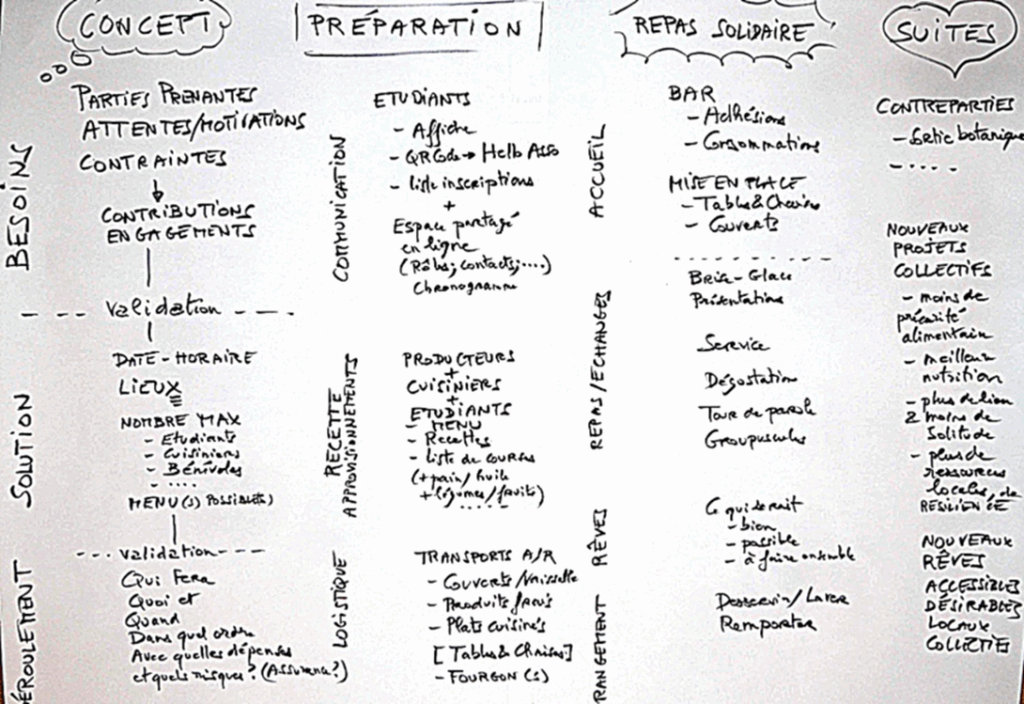 CONCEPT
BESOINS
PARTIES PRENANTES
ATTENTES/MOTIVATIONS
CONTRAINTES
CONTRIBUTIONS
ENGAGEMENTS
validation
SOLUTION
DATE-HORAIRE
LIEUX
NOMBRE MAX
- Etudiants
- Cuisiniers
- Bénévoles
- ....
MENU(s) POSSIBLE(s)
validation
DÉROULEMENT
Qui Fera
Quoi et
Quand
Dans quel ordre
Avec quelles dépenses
et quels risques? (Assurance?)
PRÉPARATION
COMMUNICATION
ETUDIANTS
- Affiche
- QR Code → Hello Asso
- liste inscriptions
+
Espace partagé
en ligne
(Rôles; contacts;....)
Chronogramme
RECETTE
APPROVISIONNEMENTS
PRODUCTEURS
+
CUISINIERS
+
ETUDIANTS
- MENU
- Recettes
- liste de courses
(+ pain/huile
+ légumes/fruits)
.....
LOGISTIQUE
TRANSPORTS A/R
- Couverts/Vaisselle
- Produits frais
- Plats cuisinés
[Tables & Chaises]
- FOURGON(s)
REPAS SOLIDAIRE
ACCUEIL
BAR
- Adhésions
- Consommations
MISE EN PLACE
- Tables & Chaises
- Couverts
REPAS/ECHANGES
Brise-Glace
Présentations
Service
Dégustation
Tour de parole
Groupuscules
RÊVES
Ce qui serait
- bien
- possible
- à faire ensemble
RANGEMENT
Desservir/Laver
Remporter
SUITES
CONTREPARTIES
- Sortie botanique
- ....
NOUVEAUX
PROJETS
COLLECTIFS
- moins de
précarité
alimentaire
- meilleure
nutrition
- plus de lien
& moins de
Solitude
- plus de
ressources
locales, de
RÉSILIENCE
NOUVEAUX
RÊVES
ACCESSIBLES
DÉSIRABLES
LOCAUX
COLLECTIFS